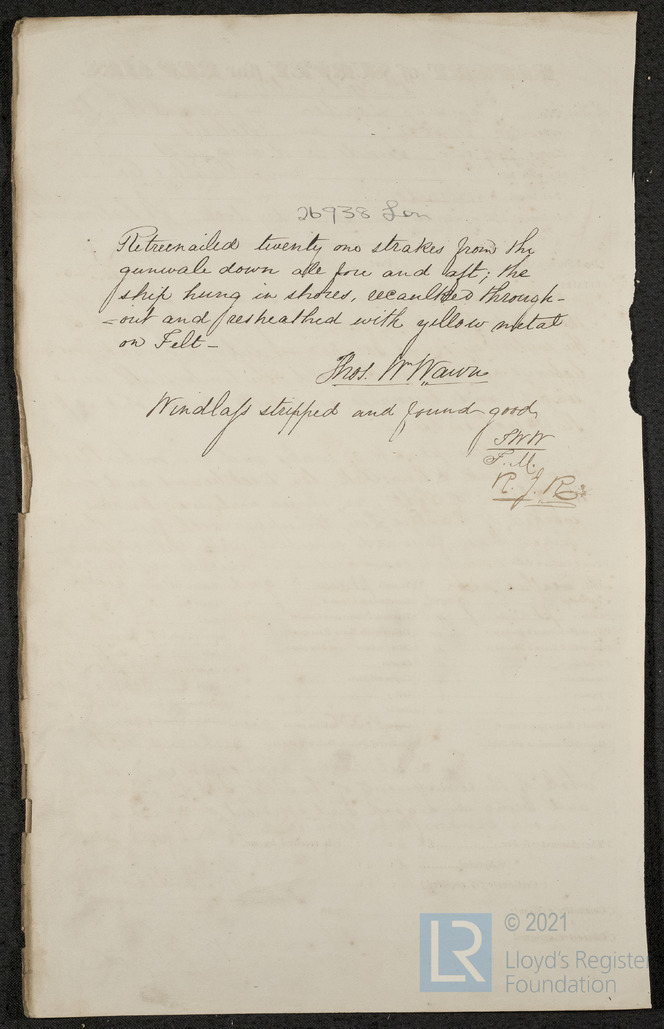 26938 Lon
Retreenailed twenty one strakes from the
gunwale down all fore and aft; the
ship hung in shores, recaulked through-
-out and resheathed with yellow metal
on Felt-
Thos. Wm Wawn
Windlass stripped and found good,
TWW
F.M.
R. J. R
© 2021
LR
Lloyd's Register
Foundation